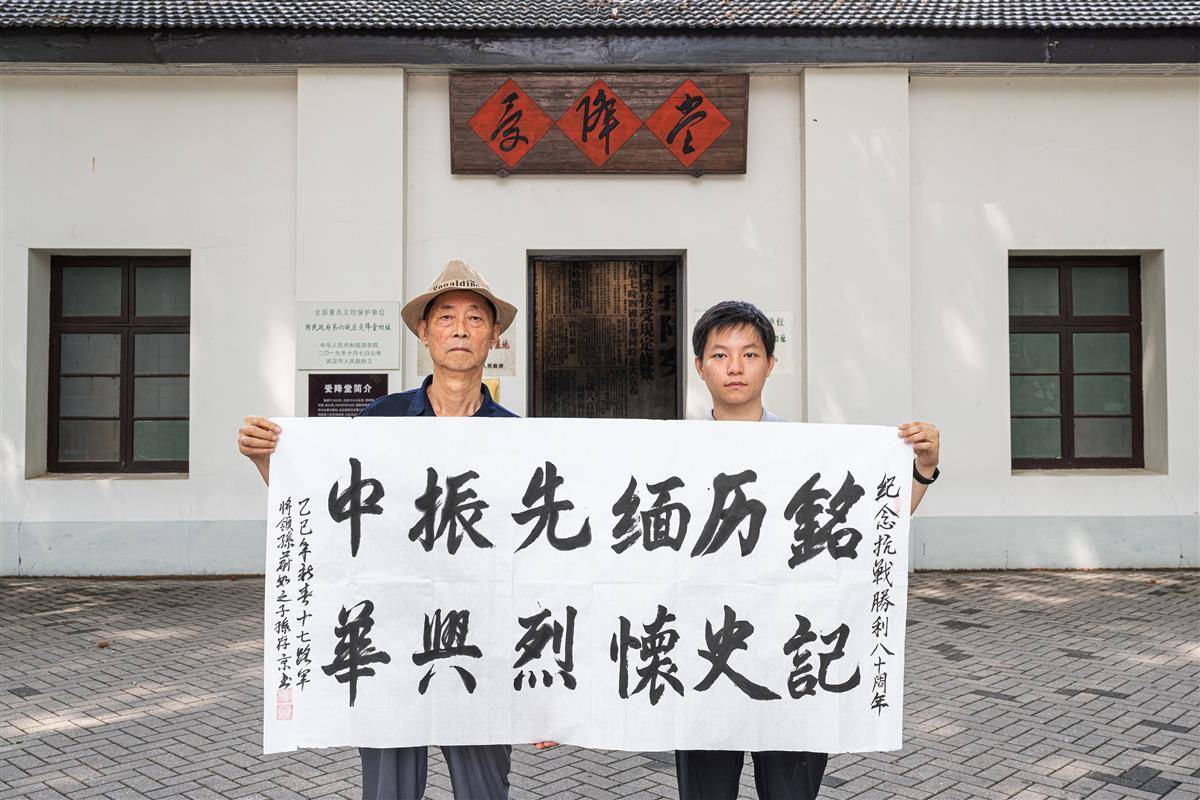 受降堂
全国重点文物保护单位
国民政府第六战区受降堂旧址
中华人民共和国国务院
二〇一九年十月七日公布
武汉市人民政府立
受降堂简介
纪念抗戰勝利八十周年
銘記
历史
缅懷
先烈
振興
中華
乙巳年新春十七路军
将領孫蔚如之子孫存京书